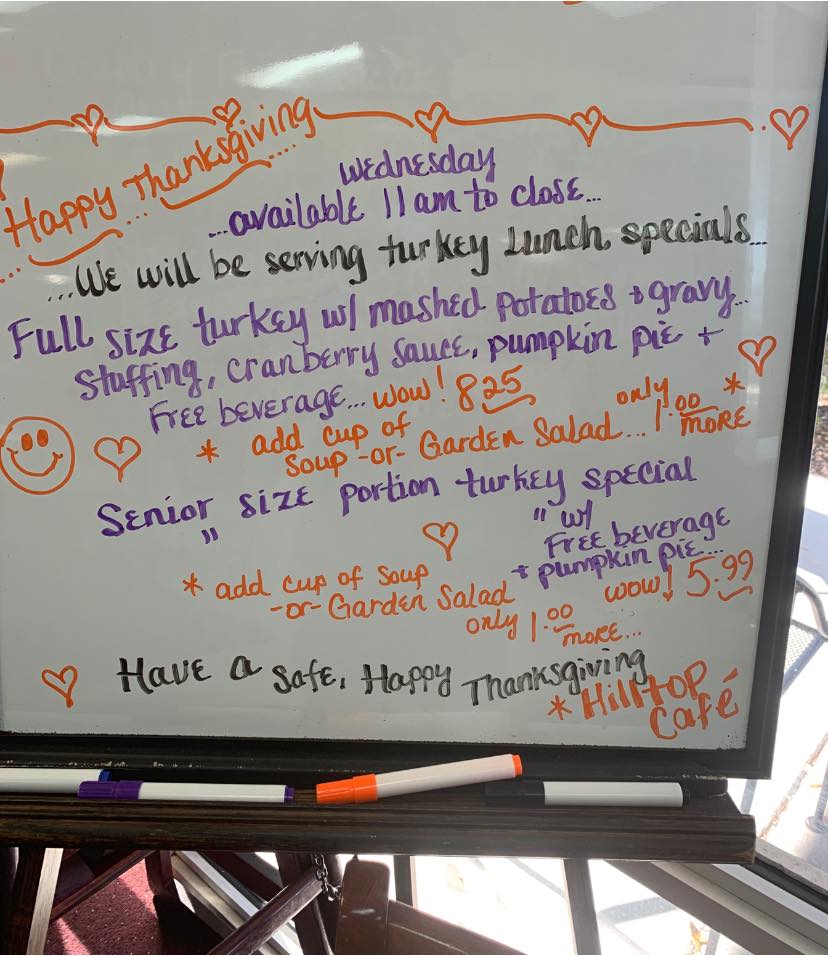 Happy Thanksgiving....
Wednesday
...available 11am to close...
...We will be serving turkey Lunch specials...
Full size turkey w/ mashed potatoes + gravy...
Stuffing, cranberry sauce, pumpkin pie +
Free beverage... wow! 825
* add cup of
soup -or- Garden Salad... only 1.00 more *
Senior size portion turkey special
" " w/
Free beverage
+ pumpkin pie...
wow! 5.99
* add cup of soup
-or- Garden Salad
only 1.00
more...
Have a safe, Happy Thanksgiving
* Hilltop
Café